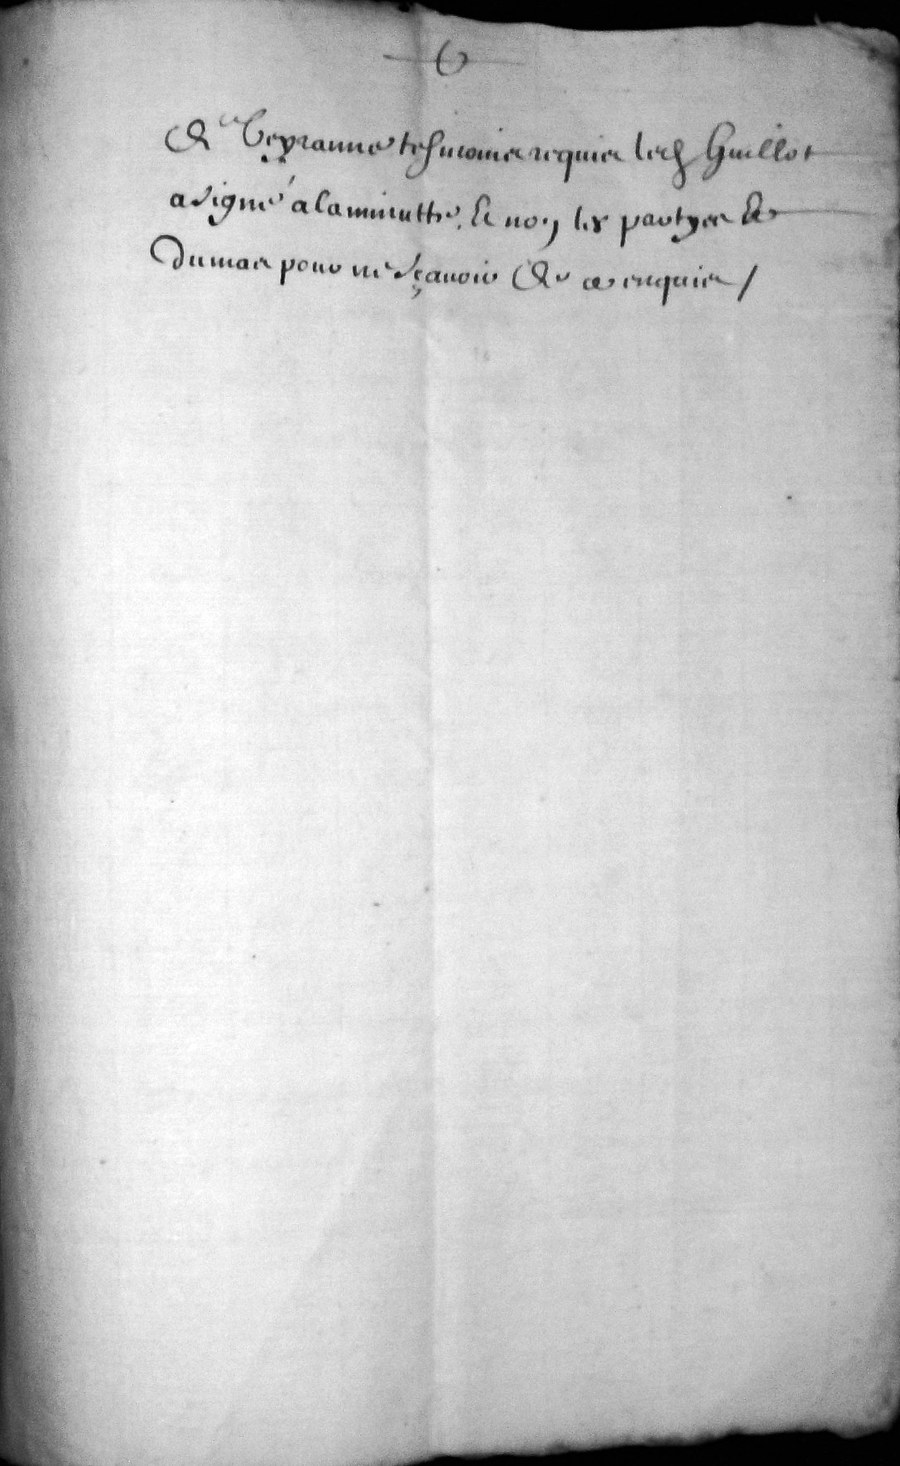 6
De Veyranne tesmoins requis led Guillot
a signé a la minutte, Et non les partyes Et
Dumas pour ne sçavoir De ce enquis /